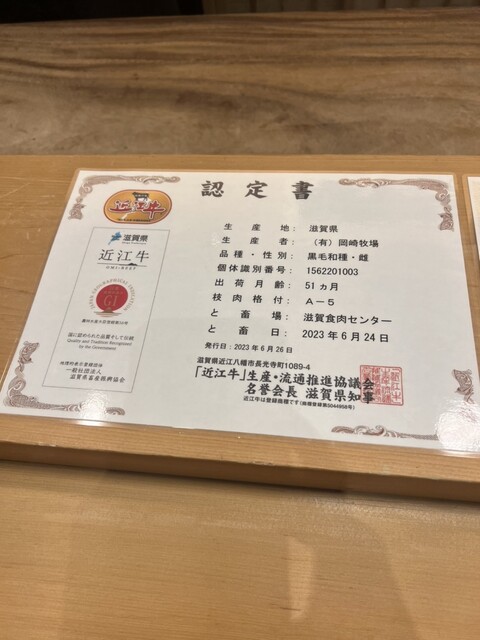 認定書
近江牛
滋賀県
近江牛
OMI-BEEF
JAPAN GEOGRAPHICAL INDICATION
GI
農林水産大臣登録第56号
国に認められた品質そして伝統
Quality and Tradition Recognized
by the Government
地理的表示登録団体
一般社団法人
滋賀県畜産振興協会
生産地: 滋賀県
生産者: (有)岡崎牧場
品種・性別: 黒毛和種・雌
個体識別番号: 1562201003
出荷月齢: 51ヵ月
枝肉格付: A-5
と畜場: 滋賀食肉センター
と畜日: 2023年6月24日
発行日:2023年6月26日
滋賀県近江八幡市長光寺町1089-4
「近江牛」生産・流通推進協議会
名誉会長 滋賀県知事
近江牛は登録商標です(商標登録第5044958号)